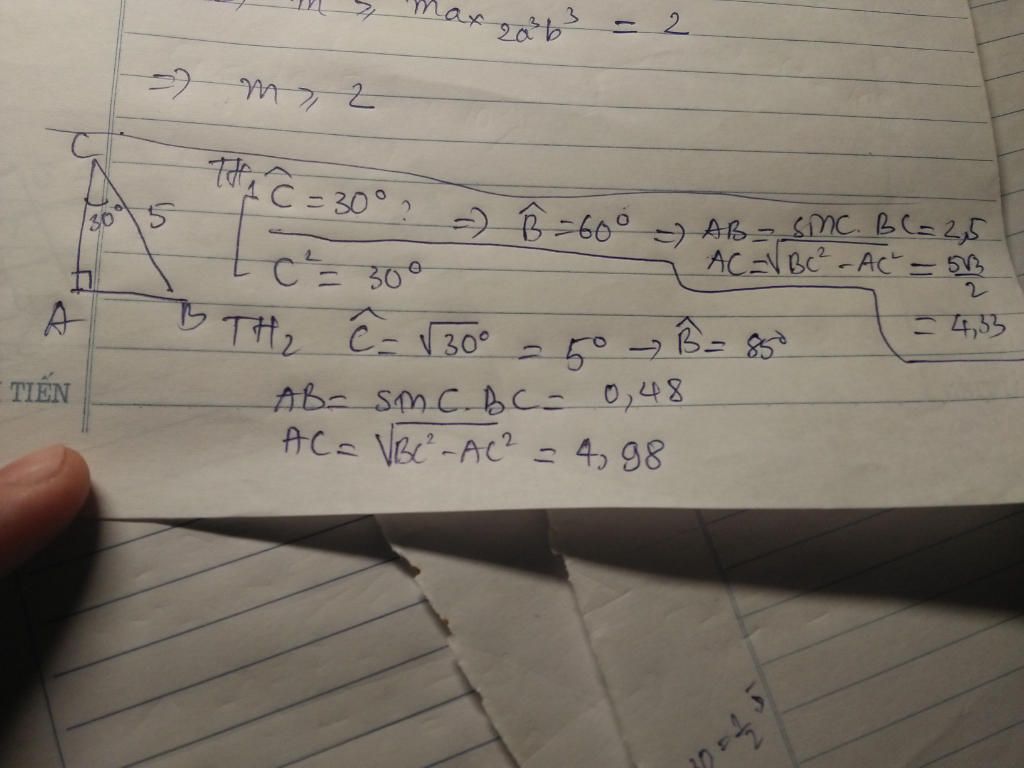 m ≥ max 2a³b³ = 2
=> m ≥ 2
C
30° 5
A B
TH1 Ĉ = 30° ? => B̂ = 60° => AB = sinC. BC = 2,5
AC = √BC² - AC² = 5√3/2
= 4,33
C² = 30°
TH2 Ĉ = √30° = 5° → B̂ = 85°
AB = sinC. BC = 0,48
TIẾN
AC = √BC² - AC² = 4,98